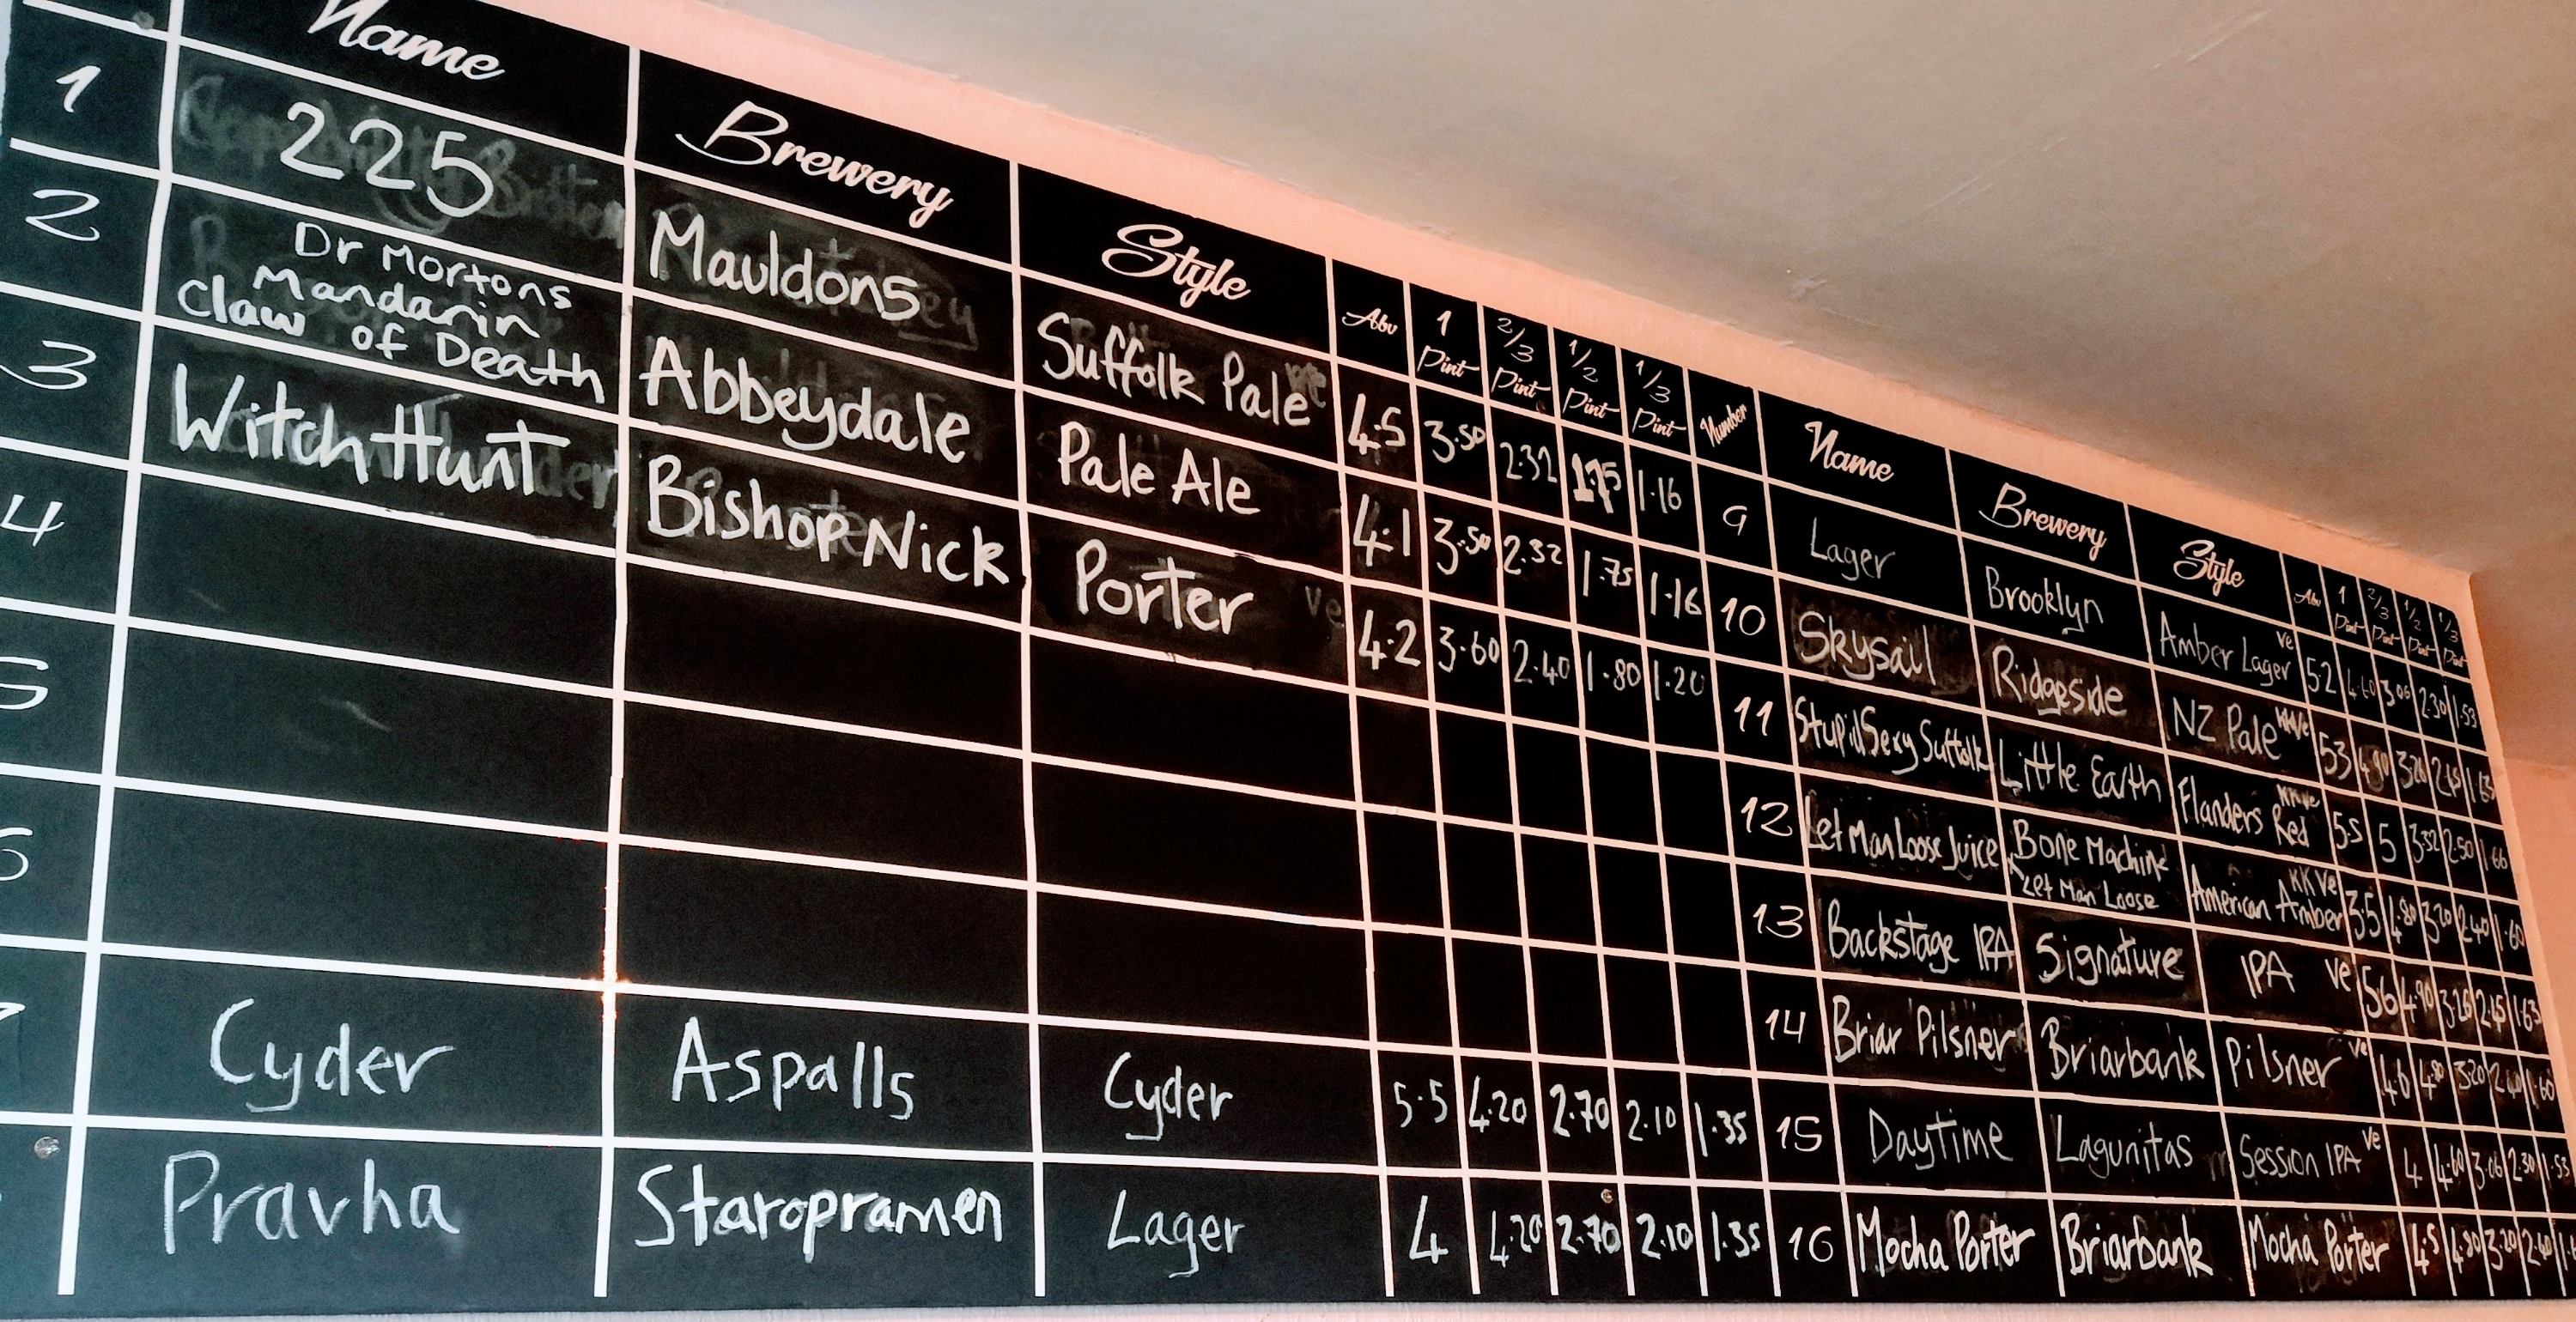 Name Brewery Style Abv 1 Pint 2/3 Pint 1/2 Pint 1/3 Pint
1 225 Mauldons Suffolk Pale 4.5 3.50 2.32 1.75 1.16
2 Dr Mortons Mandarin Claw of Death Abbeydale Pale Ale 4.1 3.50 2.32 1.75 1.16
3 Witch Hunt Bishop Nick Porter 4.2 3.60 2.40 1.80 1.20
4
5
6
7 Cyder Aspalls Cyder 5.5 4.20 2.70 2.10 1.35
Pravha Staropramen Lager 4 4.20 2.70 2.10 1.35
Number Name Brewery Style Abv 1 Pint 2/3 Pint 1/2 Pint 1/3 Pint
9 Lager Brooklyn Amber Lager ve 5.2 4.60 3.06 2.30 1.53
10 Skysail Ridgeside NZ Pale 5.3 4.90 3.26 2.45 1.63
11 Stupid Sexy Suffolk Little Earth Flanders Red KK ve 5.5 5 3.32 2.50 1.66
12 Let Man Loose Juice Bone Machine x Let Man Loose American Amber KK Ve 3.5 4.80 3.20 2.40 1.60
13 Backstage IPA Signature IPA ve 5.6 4.90 3.26 2.45 1.63
14 Briar Pilsner Briarbank Pilsner ve 4.6 4.80 3.20 2.40 1.60
15 Daytime Lagunitas Session IPA ve 4 4.60 3.06 2.30 1.53
16 Mocha Porter Briarbank Mocha Porter 4.5 4.80 3.20 2.40